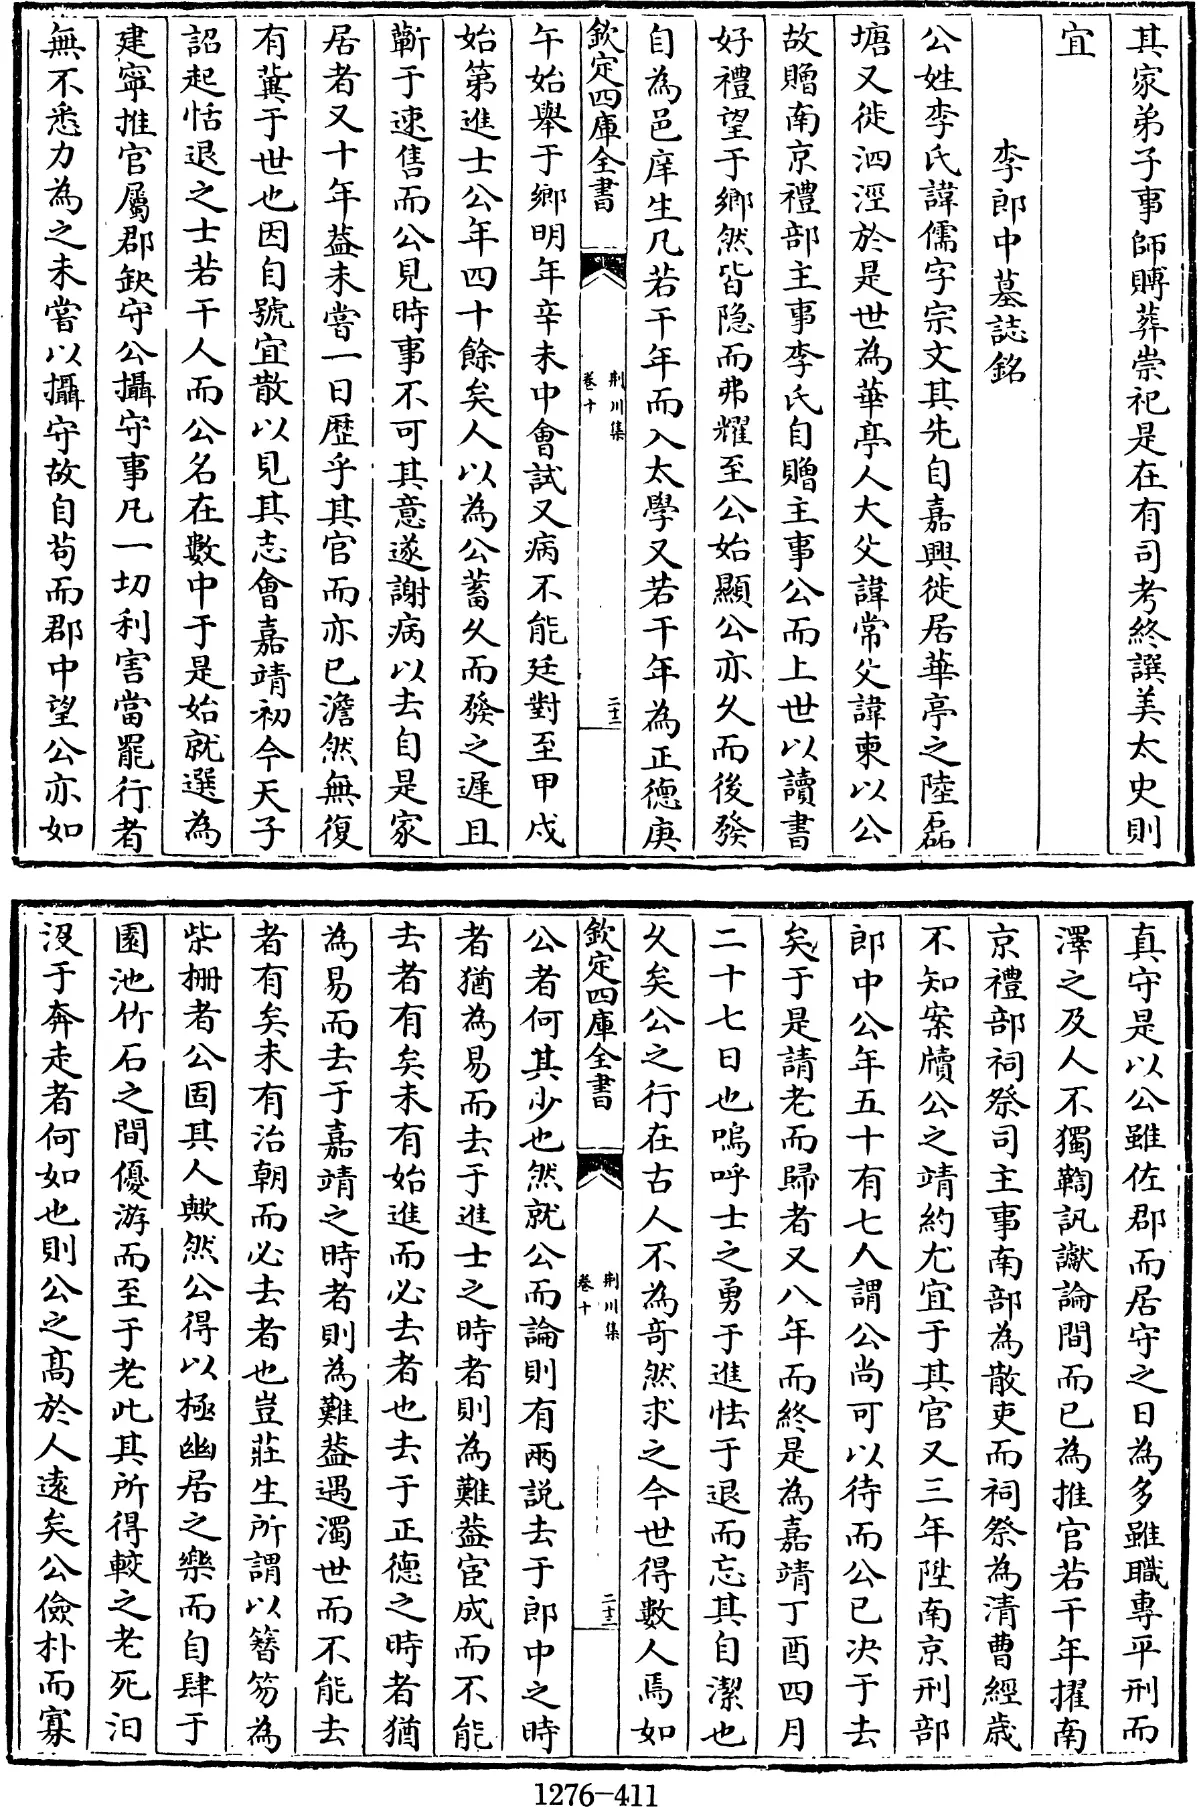 其家弟子事師賻葬崇祀是在有司考終譔美太史則
宜
李郎中墓誌銘
公姓李氏諱儒字宗文其先自嘉興徙居華亭之陸磊
塘又徙泗涇於是世為華亭人大父諱常父諱東以公
故贈南京禮部主事李氏自贈主事公而上世以讀書
好禮望于鄉然皆隐而弗耀至公始顯公亦久而後發
自為邑庠生凡若干年而入太學又若干年為正德庚
欽定四庫全書
荆川集
卷十
二十二
午始舉于鄉明年辛未中會試又病不能廷對至甲戌
始第進士公年四十餘矣人以為公蓄久而發之遲且
蘄于速售而公見時事不可其意遂謝病以去自是家
居者又十年葢未嘗一日歴乎其官而亦已澹然無復
有冀于世也因自號宜散以見其志會嘉靖初今天子
詔起恬退之士若干人而公名在數中于是始就選為
建寧推官屬郡缺守公攝守事凡一切利害當罷行者
無不悉力為之未嘗以攝守故自苟而郡中望公亦如
真守是以公雖佐郡而居守之日為多雖職專平刑而
澤之及人不獨鞫訊讞論間而已為推官若干年擢南
京禮部祠祭司主事南部為散吏而祠祭為清曹經歳
不知案牘公之靖約尤宜于其官又三年陞南京刑部
郎中公年五十有七人謂公尚可以待而公已决于去
矣于是請老而歸者又八年而終是為嘉靖丁酉四月
二十七日也嗚呼士之勇于進怯于退而忘其自潔也
久矣公之行在古人不為竒然求之今世得數人焉如
欽定四庫全書
荆川集
卷十
二十三
公者何其少也然就公而論則有兩說去于郎中之時
者猶為易而去于進士之時者則為難葢宦成而不能
去者有矣未有始進而必去者也去于正德之時者猶
為易而去于嘉靖之時者則為難葢遇濁世而不能去
者有矣未有治朝而必去者也豈莊生所謂以簪笏為
柴栅者公固其人歟然公得以極幽居之樂而自肆于
園池竹石之間優游而至于老此其所得較之老死汩
没于奔走者何如也則公之髙於人逺矣公儉朴而寡
1276-411